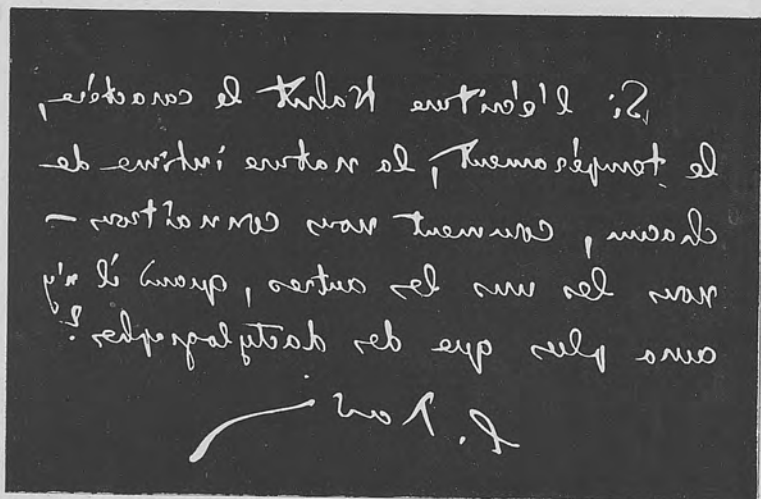 Si l'écriture trahit le caractère,
le tempérament, la nature intime de
chacun, comment nous connaîtrons-
nous les uns les autres, quand il n'y
aura plus que des dactylographes?